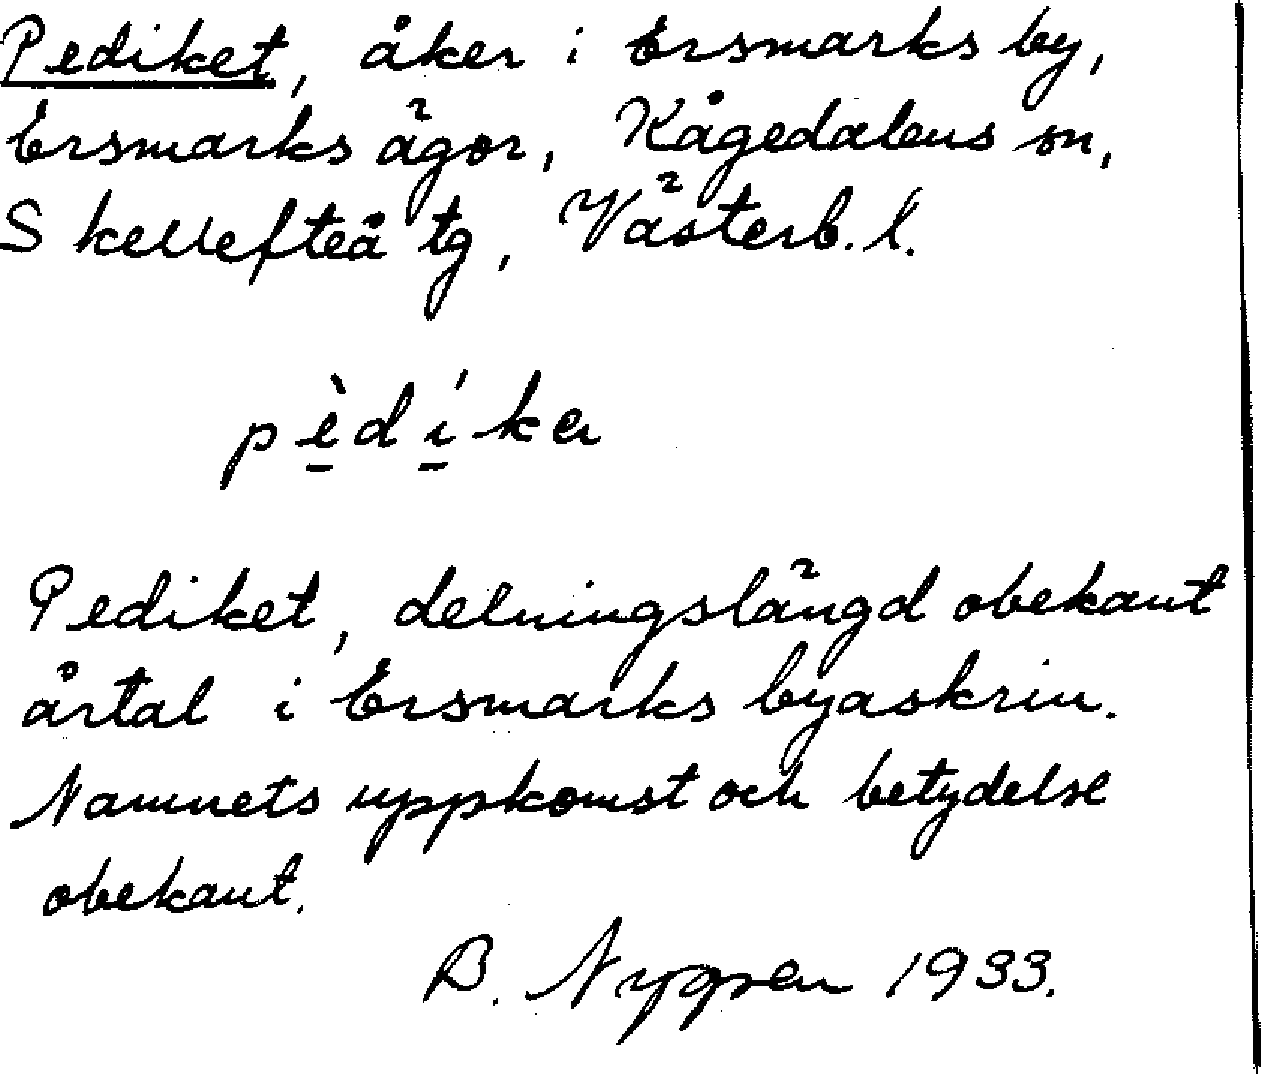 Pediket, åker i Ersmarks by,
Ersmarks ägor, Kågedalens sn,
Skellefteå tg, Västerb. l.
pèdíka
Pediket, delningslängd obekant
årtal i Ersmarks byaskrin.
Namnets uppkomst och betydelse
obekant.
B. Nygren 1933.